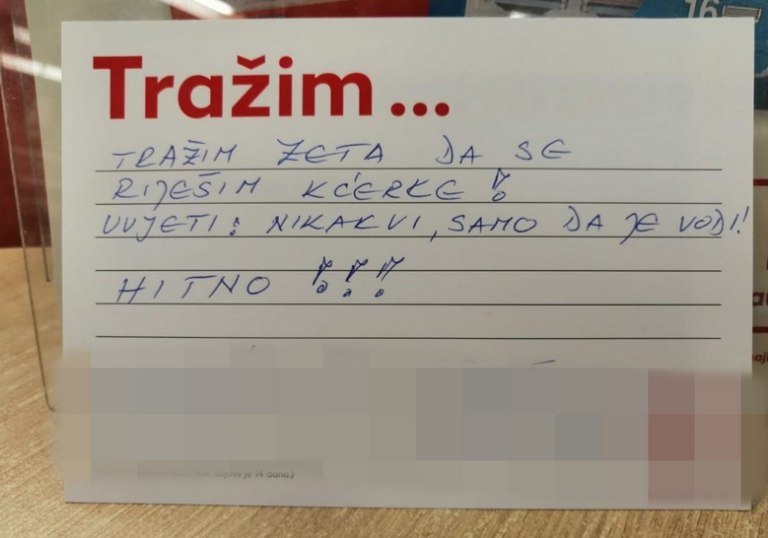 16
Tražim...
TRAŽIM ZETA DA SE
RIJEŠIM KĆERKE!
UVJETI: NIKAKVI, SAMO DA JE VODI!
HITNO !!!
je 14 dana.)